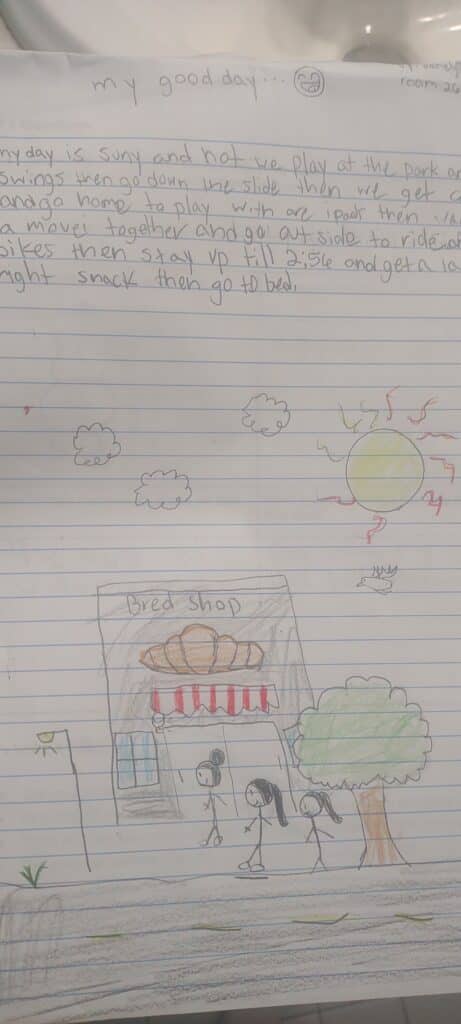 my good day...
room 26
my day is suny and hot we play at the park an
swings then go down the slide then we get
and go home to play with are ipads then
a movei together and go out side to ride
bikes then stay up till 2:56 and get a la
night snack then go to bed.
Bred Shop